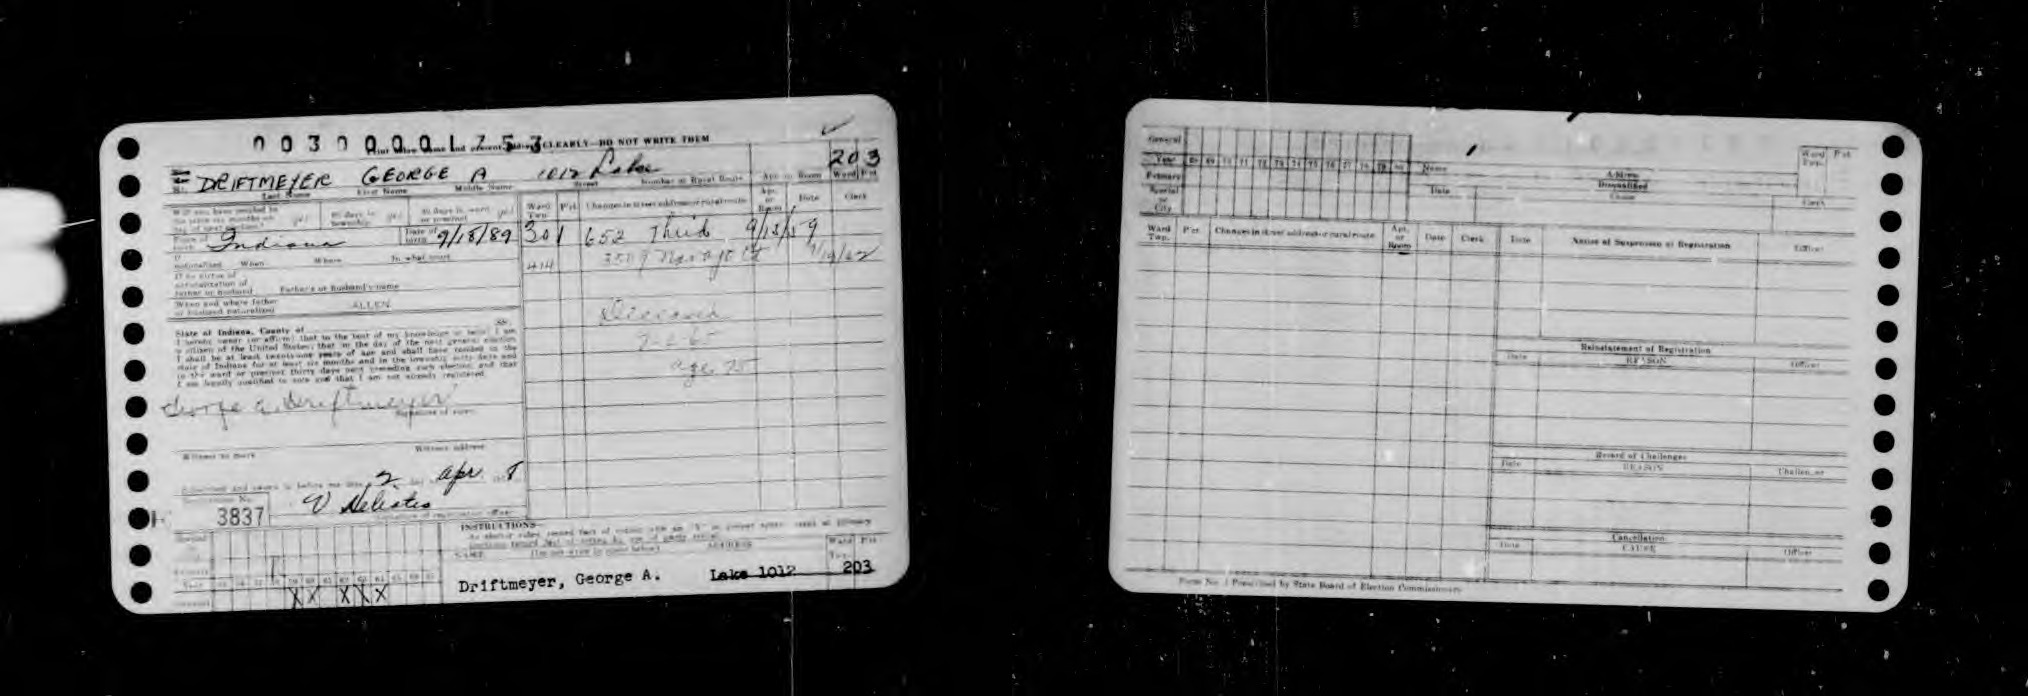 0030001753
CLEARLY—DO NOT WRITE THEM
DRIFTMEYER GEORGE A 1012 Lake 203
Last Name First Name Middle Name Street Number or Rural Route Apt. or Room Ward Pct
yes yes yes
Ward Twp. Pct. Changes in street address or rural route Apt. or Room Date Clerk
Place of birth Indiana Date of birth 9/18/89
301 652 Third 9/15/59
If naturalized When Where In what court
414 3509 Navajo Ct 9/19/62
If by virtue of naturalization of father or husband Father's or husband's name
When and where father or husband naturalized ALLEN
Deceased
age 75
State of Indiana, County of ss:
I hereby swear (or affirm) that to the best of my knowledge or belief I am
a citizen of the United States; that on the day of the next general election
I shall be at least twenty-one years of age and shall have resided in the
state of Indiana for at least six months and in the township sixty days and
in the ward or precinct thirty days next preceding such election and that
I am legally qualified to vote and that I am not already registered.
George A. Driftmeyer
Signature of voter
Witness to mark Witness address
Subscribed and sworn to before me this 2 day of Apr.
3837
INSTRUCTIONS—
NAME ADDRESS Ward Pct
Driftmeyer, George A. Lake 1012 203
General
Vote 69 70 71 72 73 74 75 76 77 78 79 80
Primary
Special or City
Name Address Ward Twp. Pct
Disqualified
Date Cause Clerk
Ward Twp. Pct. Changes in street address or rural route Apt. or Room Date Clerk
Date Notice of Suspension of Registration Officer
Reinstatement of Registration
Date REASON Officer
Record of Challenges
Date REASON Challenger
Cancellation
Date CAUSE Officer
Prescribed by State Board of Election Commissioners